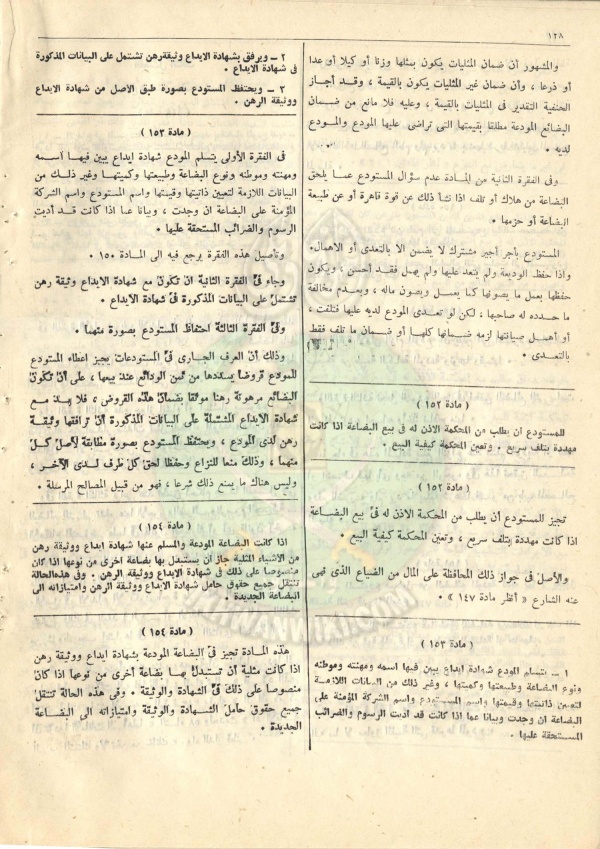 ١٢٨
والمشهور أن ضمان المثليات يكون بمثلها وزنا أو كيلا أو عدا
أو ذرعا ، وأن ضمان غير المثليات يكون بالقيمة ، وقد أجاز
الحنفية التقدير فى المثليات بالقيمة ، وعليه فلا مانع من ضمان
البضائع المودعة مطلقا بقيمتها التى تراضى عليها المودع والمودع
لديه .
وفى الفقرة الثانية من المادة عدم سؤال المستودع عما يلحق
البضاعة من هلاك أو تلف اذا نشأ ذلك عن قوة قاهرة أو عن طبيعة
البضاعة أو حزمها .
المستودع بأجر أجير مشترك لا يضمن الا بالتعدى أو الاهمال.
واذا حفظ الوديعة ولم يتعد عليها ولم يهمل فقد أحسن ، ويكون
حفظها بعمل ما يصونها كما يعمل ويصون ماله ، وبعدم مخالفة
ما حدده له صاحبها ، لكن لو تعدى المودع لديه عليها فتلفت ،
أو أهمل صيانتها لزمه ضمانها كلها أو ضمان ما تلف فقط
بالتعدى .
( مادة ١٥٢ )
للمستودع أن يطلب من المحكمة الاذن له فى بيع البضاعة اذا كانت
مهددة بتلف سريع . وتعين المحكمة كيفية البيع .
( مادة ١٥٢ )
تجيز للمستودع أن يطلب من المحكمة الاذن له فى بيع البضاعة
اذا كانت مهددة بتلف سريع ، وتعين المحكمة كيفية البيع .
والأصل فى جواز ذلك المحافظة على المال من الضياع الذى نهى
عنه الشارع « أنظر مادة ١٤٧ » .
( مادة ١٥٣ )
١ ــ يتسلم المودع شهادة ايداع يبين فيها اسمه ومهنته وموطنه
ونوع البضاعة وطبيعتها وكميتها ، وغير ذلك من البيانات اللازمة
لتعيين ذاتيتها وقيمتها واسم المستودع واسم الشركة المؤمنة على
البضاعة ان وجدت وبيانا عما اذا كانت قد أديت الرسوم والضرائب
المستحقة عليها .
٢ ــ ويرفق بشهادة الايداع وثيقة رهن تشتمل على البيانات المذكورة
فى شهادة الايداع .
٣ ــ ويحتفظ المستودع بصورة طبق الأصل من شهادة الايداع
ووثيقة الرهن .
( مادة ١٥٣ )
فى الفقرة الأولى يتسلم المودع شهادة ايداع يبين فيها اسمه
ومهنته وموطنه ونوع البضاعة وطبيعتها وكميتها وغير ذلك من
البيانات اللازمة لتعيين ذاتيتها وقيمتها واسم المستودع واسم الشركة
المؤمنة على البضاعة ان وجدت ، وبيانا عما اذا كانت قد أديت
الرسوم والضرائب المستحقة عليها .
وتأصيل هذه الفقرة يرجع فيه الى المادة ١٥٠ .
وجاء فى الفقرة الثانية ان تكون مع شهادة الايداع وثيقة رهن
تشتمل على البيانات المذكورة فى شهادة الايداع .
وفى الفقرة الثالثة احتفاظ المستودع بصورة منهما .
وذلك أن العرف الجارى فى المستودعات يجيز اعطاء المستودع
للمودع قروضا يسددها من ثمن الودائع عند بيعها ، على أن تكون
البضائع مرهونة رهنا موثقا بضمان هذه القروض ، فلا بد مع
شهادة الايداع المشتملة على البيانات المذكورة أن ترافقها وثيقة
رهن لدى المودع ، ويحتفظ المستودع بصورة مطابقة لأصل كل
منهما ، وذلك منعا للنزاع وحفظا لحق كل طرف لدى الآخر ،
وليس هناك ما يمنع ذلك شرعا ، فهو من قبيل المصالح المرسلة .
( مادة ١٥٤ )
اذا كانت البضاعة المودعة والمسلم عنها شهادة ايداع ووثيقة رهن
من الأشياء المثلية جاز أن يستبدل بها بضاعة اخرى من نوعها اذا كان
منصوصا على ذلك فى شهادة الايداع ووثيقة الرهن . وفى هذه الحالة
تنتقل جميع حقوق حامل شهادة الايداع ووثيقة الرهن وامتيازاته الى
البضاعة الجديدة .
( مادة ١٥٤ )
هذه المادة تجيز فى البضاعة المودعة بشهادة ايداع ووثيقة رهن
اذا كانت مثلية أن تستبدل بها بضاعة أخرى من نوعها اذا كان
منصوصا على ذلك فى الشهادة والوثيقة . وفى هذه الحالة تنتقل
جميع حقوق حامل الشهادة والوثيقة وامتيازاته الى البضاعة
الجديدة .